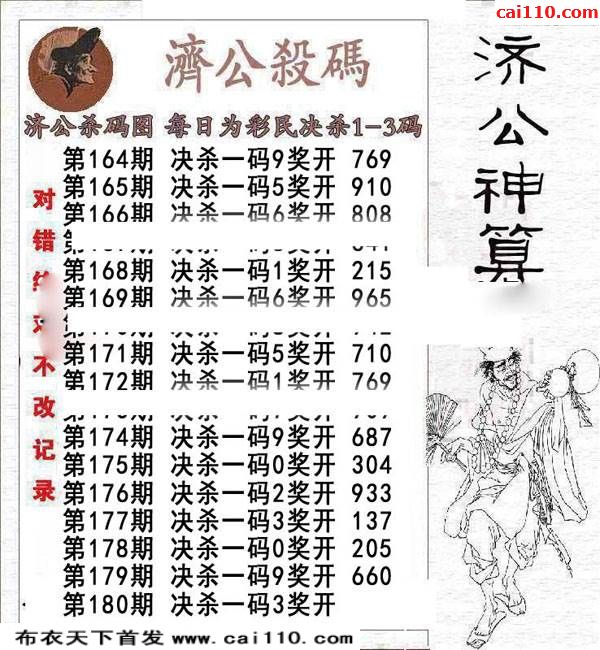 cai110.com
濟公殺碼
济公神算
济公杀码图 每日为彩民决杀1-3码
对错绝对不改记录
第164期 决杀一码9奖开 769
第165期 决杀一码5奖开 910
第166期 决杀一码6奖开 808
第168期 决杀一码1奖开 215
第169期 决杀一码6奖开 965
第171期 决杀一码5奖开 710
第172期 决杀一码1奖开 769
第174期 决杀一码9奖开 687
第175期 决杀一码0奖开 304
第176期 决杀一码2奖开 933
第177期 决杀一码3奖开 137
第178期 决杀一码0奖开 205
第179期 决杀一码9奖开 660
第180期 决杀一码3奖开
布衣天下首发 www.cai110.com